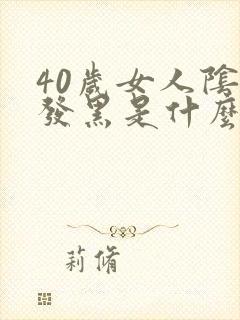 40歲女人陰
發黑是什麼
莉脩